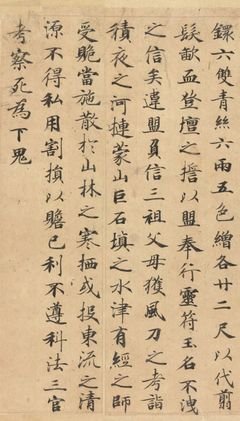 鐶六雙青絲六兩五色繒各廿二尺以代翦
髮歃血登壇之擔以盟奉行靈符玉名不洩
之信矣違盟負信三祖父母獲風刀之考詣
積夜之河摙蒙山巨石填之水津有經之師
受貺當施散於山林之寒栖或投東流之清
源不得私用割損以贍己利不遵科法三官
考察死為下鬼